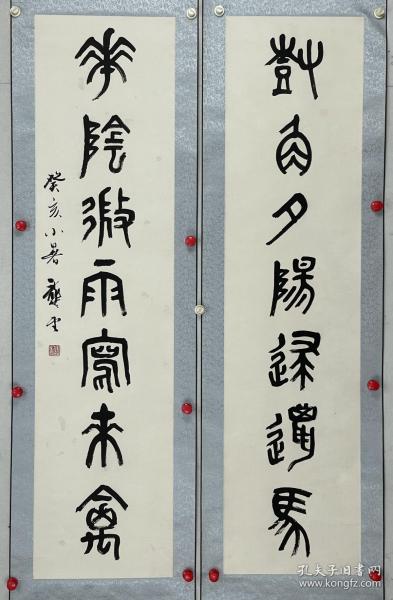 角夕陽歸還馬
華陰微雨寫來禽
癸亥小暑 龔望
孔夫子旧书网
www.kongfz.com